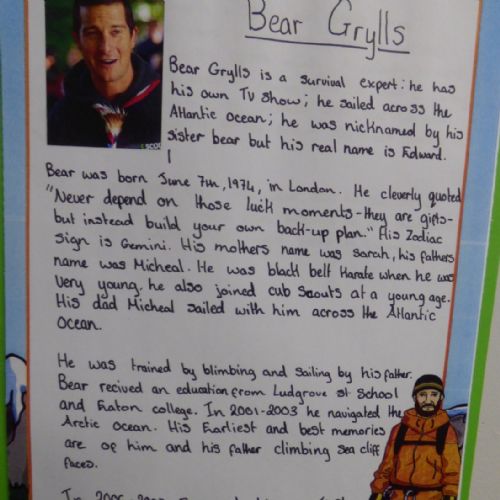 Bear Grylls
Bear Grylls is a survival expert: he has
his own TV show; he sailed across the
Atlantic ocean; he was nicknamed by his
sister bear but his real name is Edward.
Bear was born June 7th, 1974, in London. He cleverly quoted
"Never depend on those luck moments-they are gifts-
but instead build your own back-up plan." His Zodiac
sign is Gemini. His mothers name was sarah, his fathers
name was Micheal. He was black belt Karate when he was
very young. he also joined cub scouts at a young age.
His dad Micheal sailed with him across the Atlantic
Ocean.
He was trained by blimbing and sailing by his father.
Bear recived an education from Ludgrove st School
and Eaton college. In 2001-2003 he navigated the
Arctic ocean. His Earliest and best memories
are of him and his father climbing sea cliff
faces.